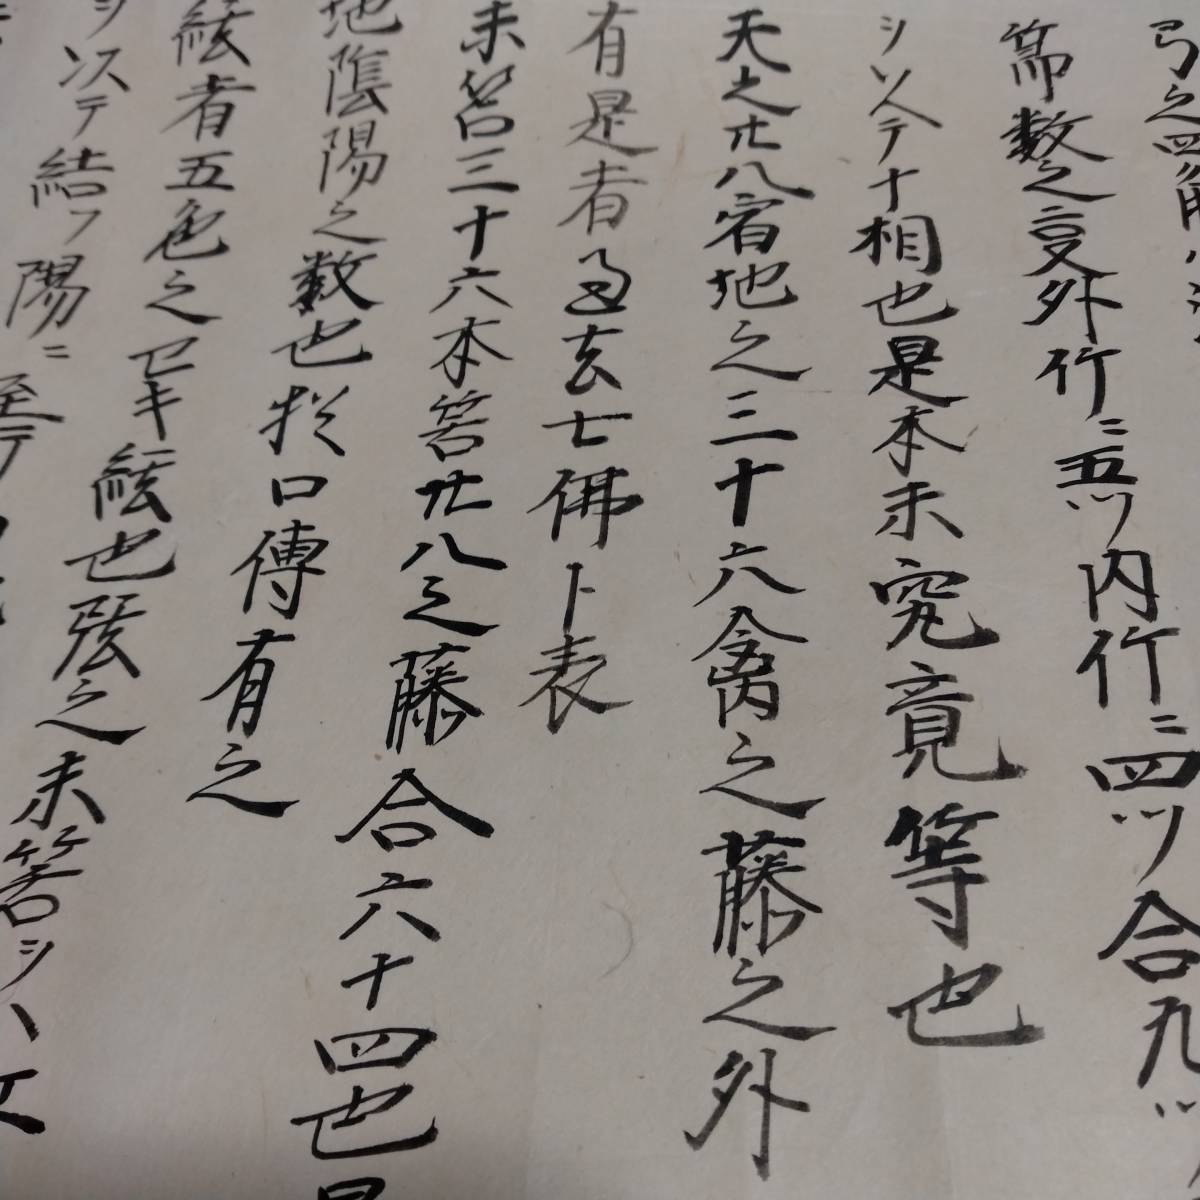 弓之四節ハ
節数之事外竹ニ五ツ内竹ニ四ツ合九ツ
シソヘテ十相也是本末究竟等也
天之廿八宿地之三十六禽之藤之外
有是者過去七佛ト表
末筈三十六本筈廿八之藤合六十四也是
地陰陽之数也 口傳有之
絃者五色之 キ絃也弦之末筈シハ
シ以テ結フ陽ニ至テ